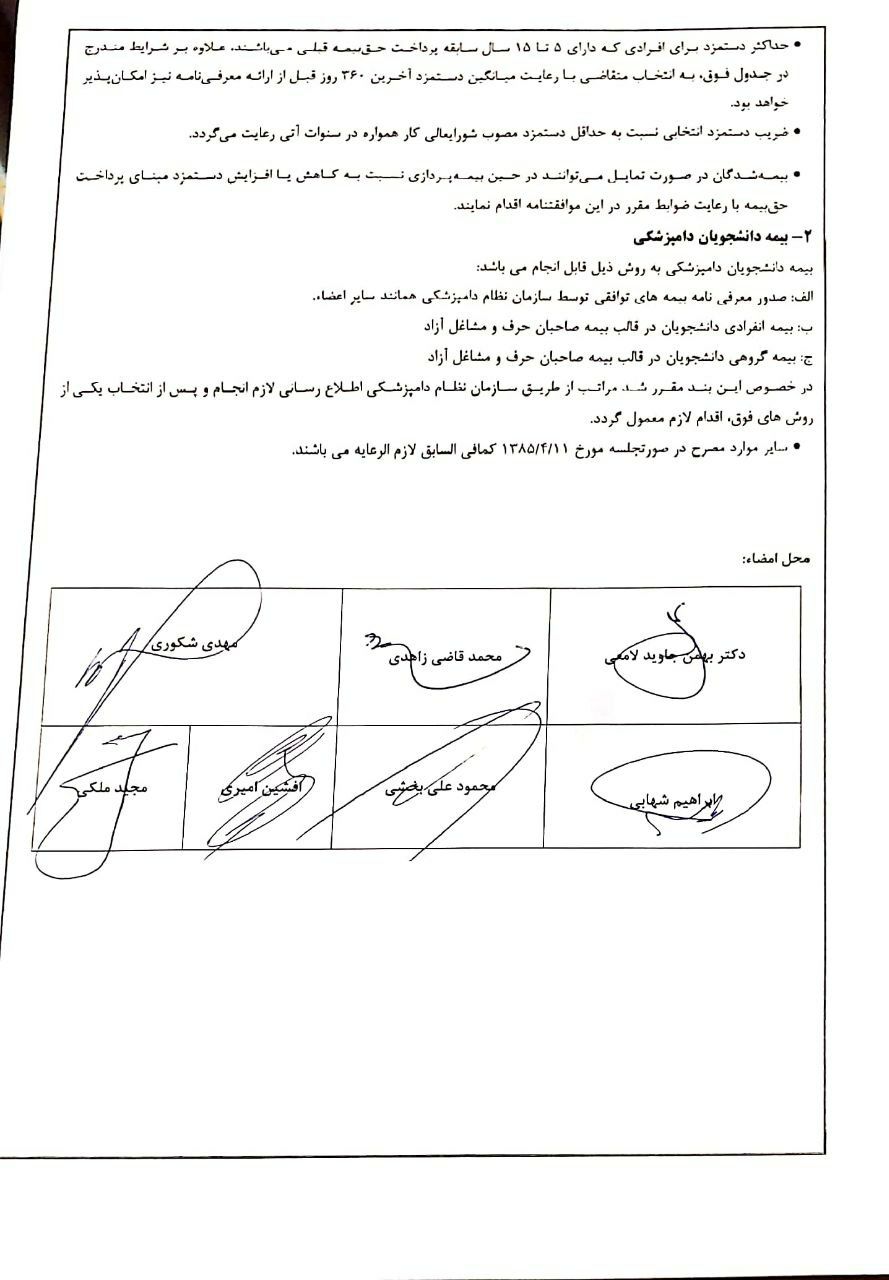 • حداکثر دستمزد برای افرادی که دارای ۵ تا ۱۵ سال سابقه پرداخت حق‌بیمه قبلی می‌باشند، علاوه بر شرایط مندرج
در جدول فوق، به انتخاب متقاضی با رعایت میانگین دستمزد آخرین ۳۶۰ روز قبل از ارائه معرفی‌نامه نیز امکان‌پذیر
خواهد بود.
• ضریب دستمزد انتخابی نسبت به حداقل دستمزد مصوب شورایعالی کار همواره در سنوات آتی رعایت می‌گردد.
• بیمه‌شدگان در صورت تمایل می‌توانند در حین بیمه‌پردازی نسبت به کاهش یا افزایش دستمزد مبنای پرداخت
حق‌بیمه با رعایت ضوابط مقرر در این موافقتنامه اقدام نمایند.
۲- بیمه دانشجویان دامپزشکی
بیمه دانشجویان دامپزشکی به روش ذیل قابل انجام می باشد:
الف: صدور معرفی نامه بیمه های توافقی توسط سازمان نظام دامپزشکی همانند سایر اعضاء.
ب: بیمه انفرادی دانشجویان در قالب بیمه صاحبان حرف و مشاغل آزاد
ج: بیمه گروهی دانشجویان در قالب بیمه صاحبان حرف و مشاغل آزاد
در خصوص این بند مقرر شد مراتب از طریق سازمان نظام دامپزشکی اطلاع رسانی لازم انجام و پس از انتخاب یکی از
روش های فوق، اقدام لازم معمول گردد.
• سایر موارد مصرح در صورتجلسه مورخ ۱۳۸۵/۴/۱۱ کمافی السابق لازم الرعایه می باشند.
محل امضاء:
دکتر بهمن جاوید لامعی
محمد قاضی زاهدی
مهدی شکوری
ابراهیم شهابی
محمود علی بخشی
افشین امیری
مجید ملکی